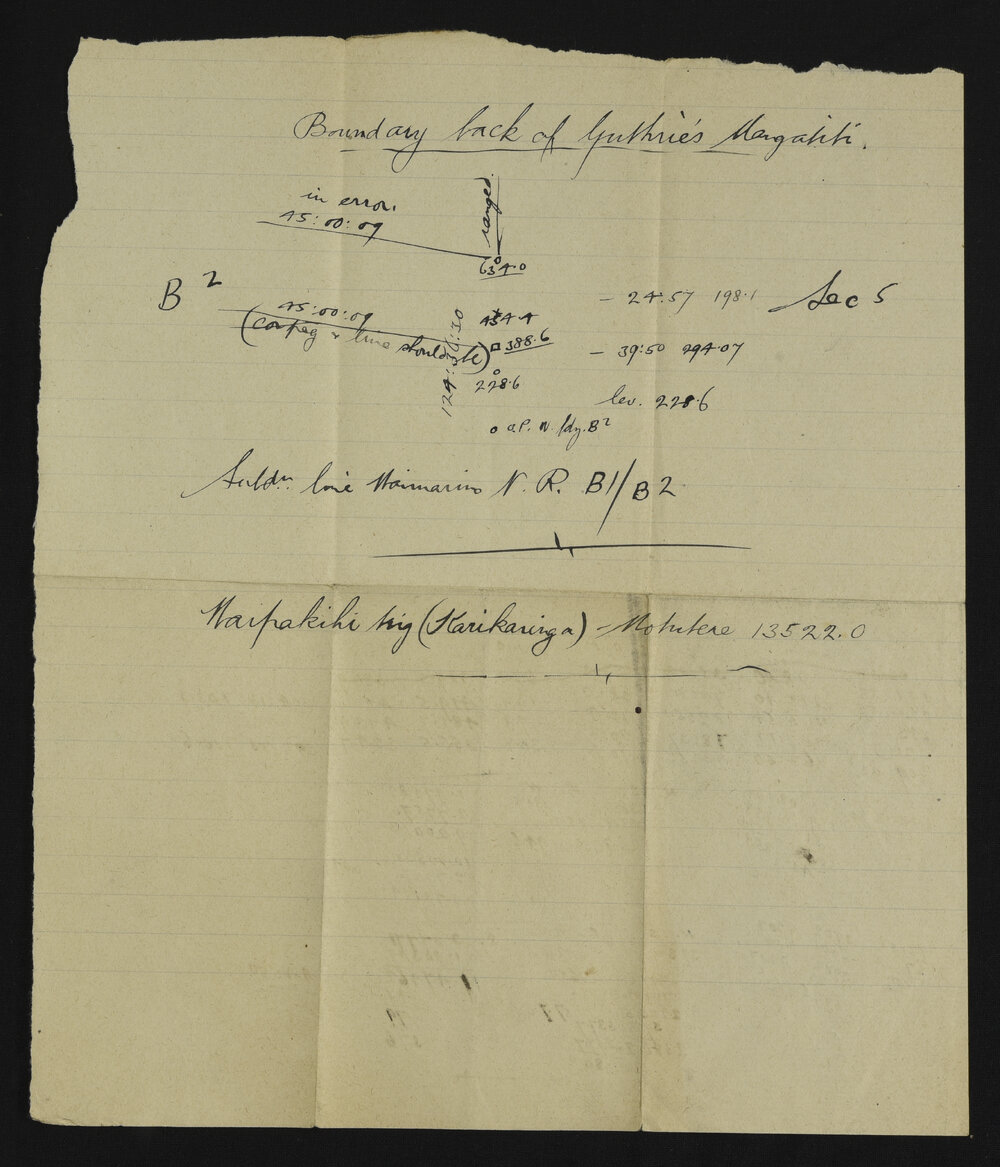 Boundary back of Guthrie's Mangatiti.
in error.
45:00:09
ranged
634.0
B2
45:00:09
(cor peg & line should be)
124:36:30
434.4
388.6
228.6
o o.P. N. bdy. B2
- 24:57 198.1
- 39:50 294.07
lev. 228.6
Sec 5
Subdn. line Waimarino N. R. B1/B2
Waipakihi trig (Karikaringa) - Motutere 13522.0